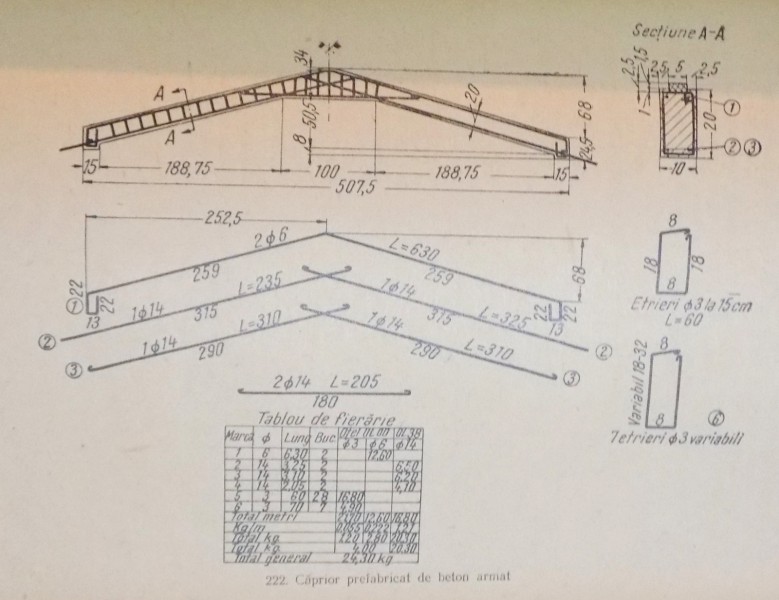 Secțiune A-A
34
A
A
50,5
8
20
68
24,5
15
188,75
100
188,75
15
507,5
2,5
1,5
2,5
5
2,5
1
①
20
② ③
10
252,5
2ϕ6
L=630
259
259
68
22
①
22
13
22
22
13
L=235
1ϕ14
315
②
1ϕ14
315
L=325
②
L=310
1ϕ14
290
③
1ϕ14
290
L=310
③
8
18
18
8
Etrieri ϕ3 la 15cm
L=60
8
Variabil 18-32
8
⑥
7 etrieri ϕ3 variabili
2ϕ14 L=205
180
Tablou de fierărie
Marca ϕ Lung Buc Oțel OL00 OL38
ϕ3 ϕ6 ϕ14
1 6 6,30 2 12,60
2 14 3,25 2 6,50
3 14 3,10 2 6,20
4 14 2,05 2 4,10
5 3 60 28 16,80
6 3 70 7 4,90
Total metri 12,60 16,80
Kg/m 1,21
Total kg 2,80 20,30
Total kg 4,00 20,30
Total general 24,30 kg
222. Căprior prefabricat de beton armat